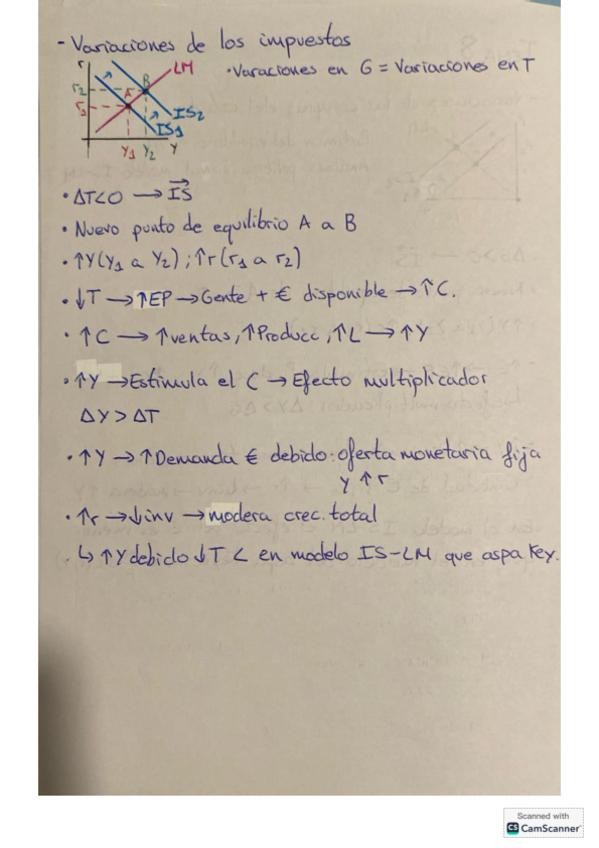 - Variaciones de los impuestos
r
LM
· Varaciones en G = Variaciones en T
r2
B
r1
A
IS2
IS1
Y1 Y2 Y
· ΔT<0 → I͞S⃗
· Nuevo punto de equilibrio A a B
· ↑Y (Y1 a Y2) ; ↑r (r1 a r2)
· ↓T → ↑EP → Gente + € disponible → ↑C.
· ↑C → ↑ventas, ↑Producc, ↑L → ↑Y
· ↑Y → Estimula el C → Efecto multiplicador
ΔY > ΔT
· ↑Y → ↑Demanda € debido: oferta monetaria fija
y ↑r
· ↑r → ↓inv → modera crec. total
↳ ↑Y debido ↓T < en modelo IS-LM que aspa Key.
Scanned with
CS CamScanner